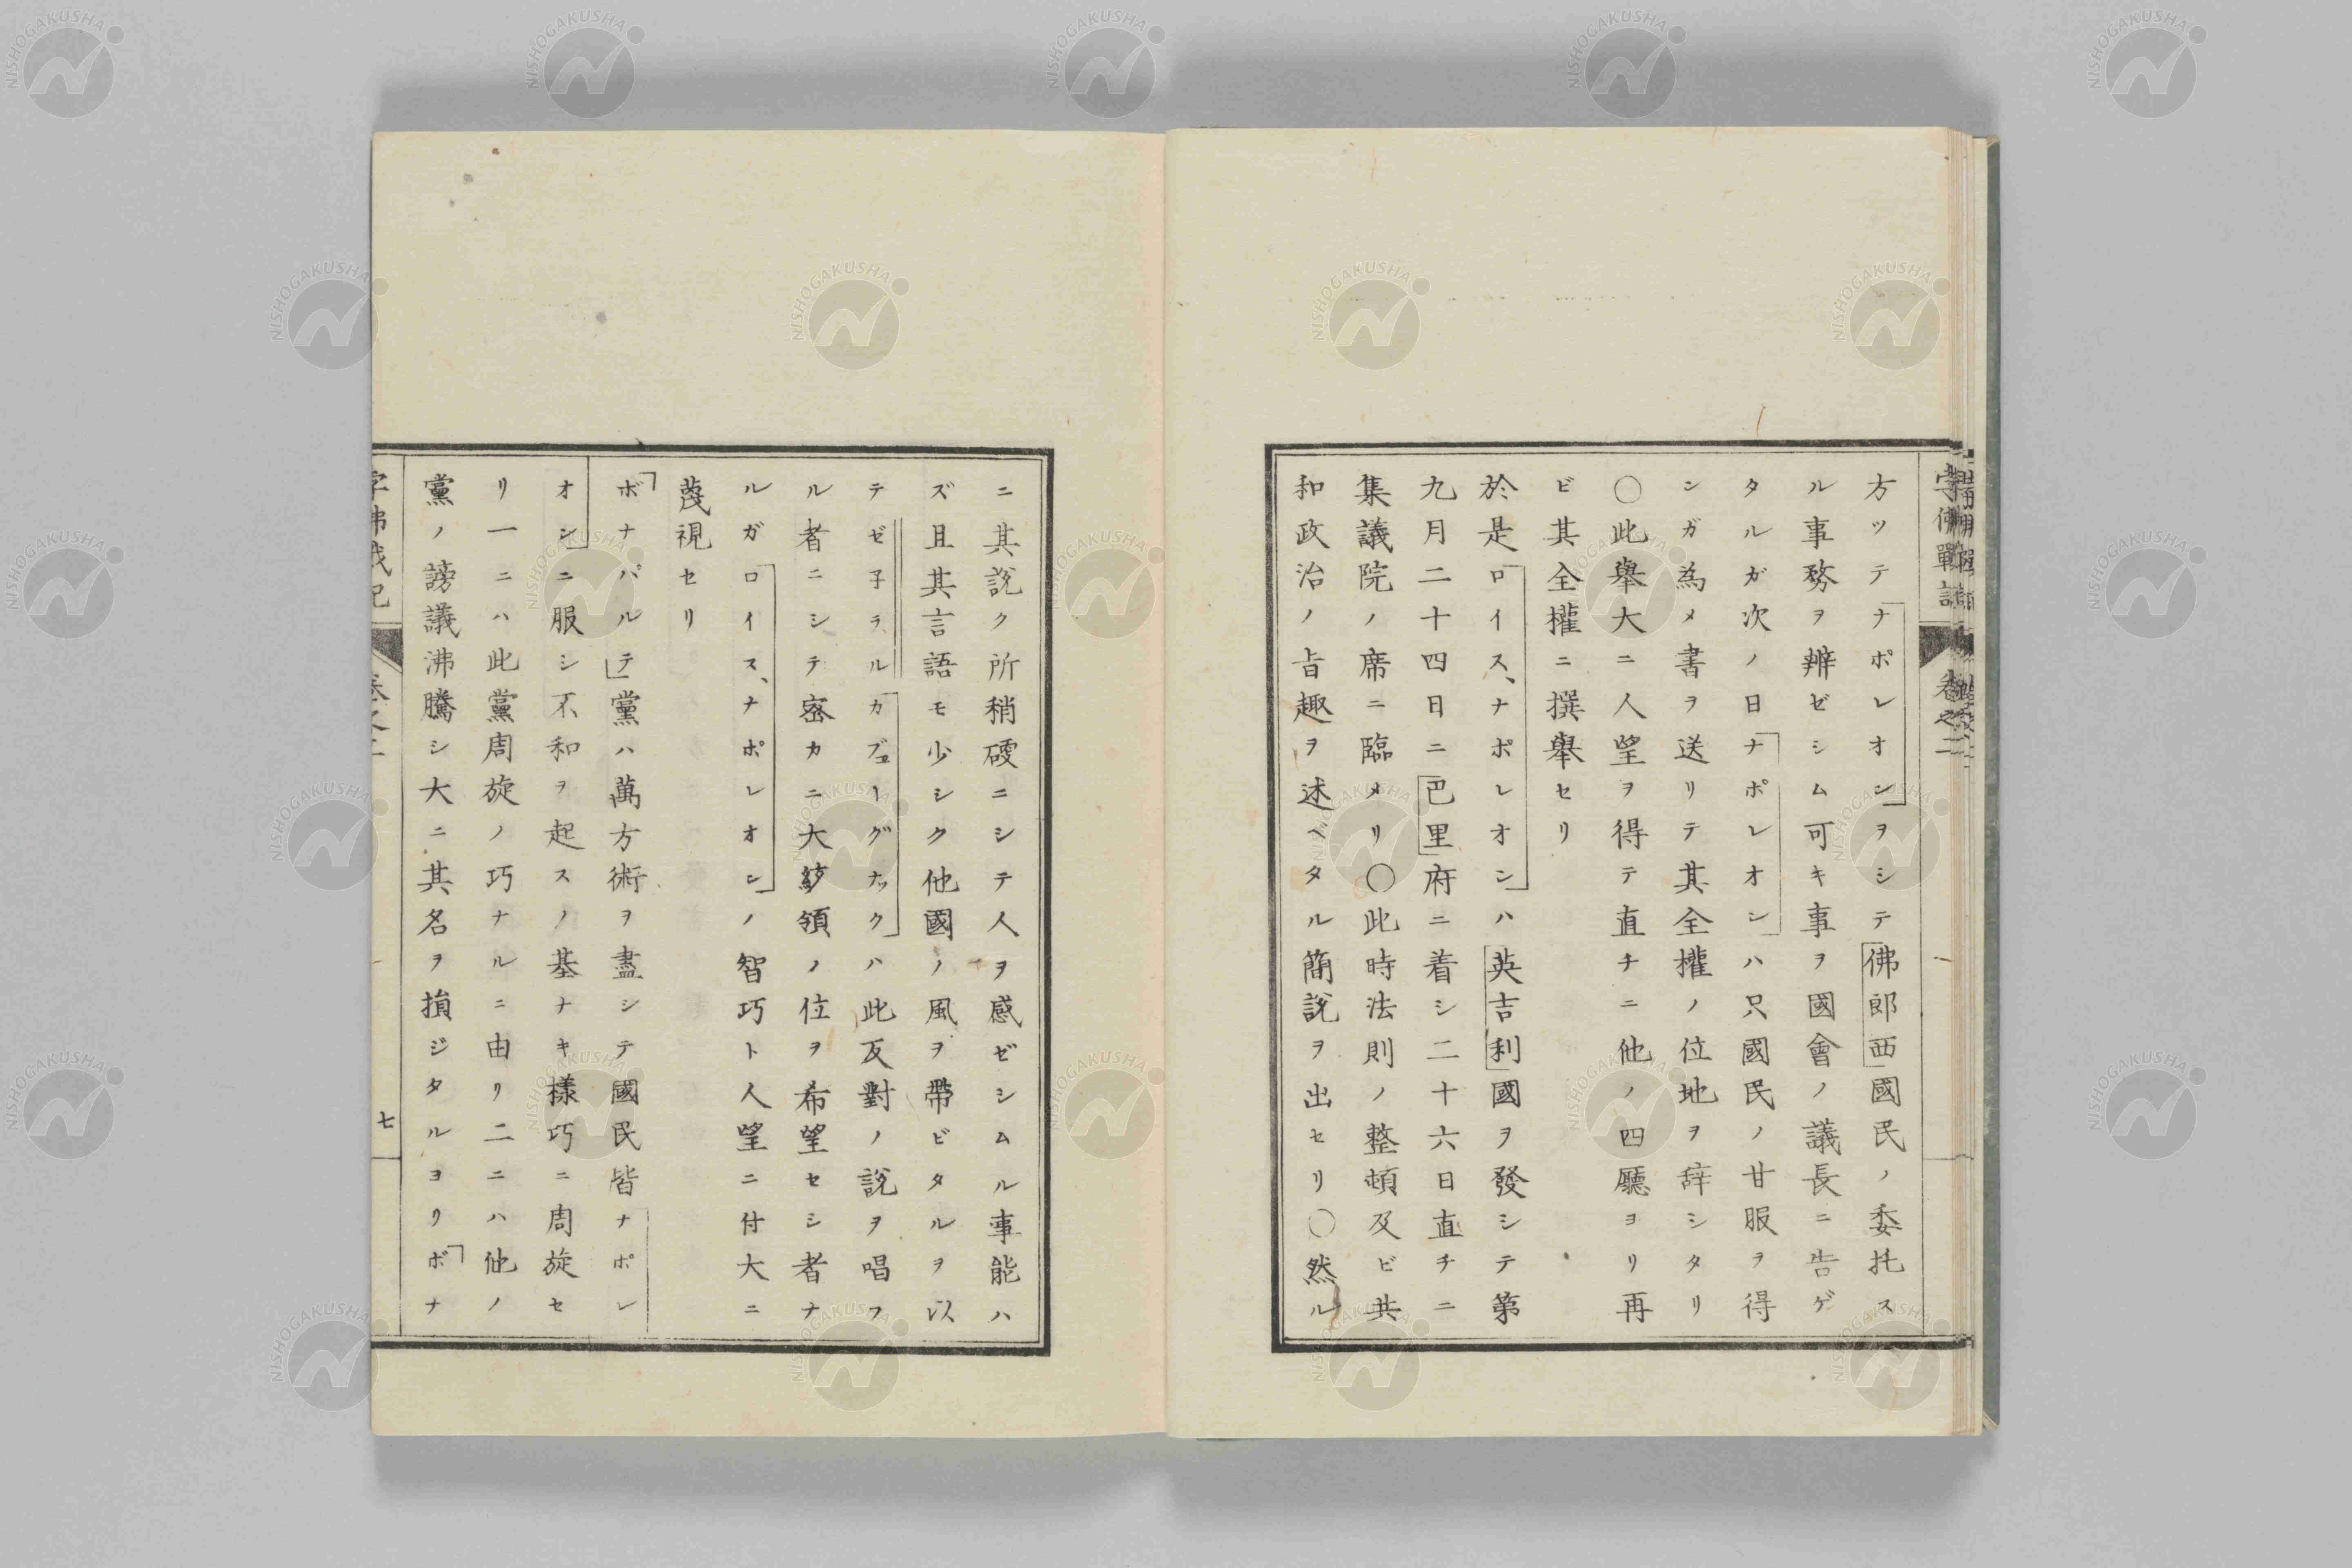 方ッテナポレオンヲシテ佛郎西國民ノ委托ス
ル事務ヲ辨ゼシム可キ事ヲ國會ノ議長ニ告ゲ
タルガ次ノ日ナポレオンハ只國民ノ甘服ヲ得
ンガ為メ書ヲ送リテ其全權ノ位地ヲ辞シタリ
〇此舉大ニ人望ヲ得テ直チニ他ノ四廳ヨリ再
ビ其全權ニ撰舉セリ
於是ロイス、ナポレオンハ英吉利國ヲ發シテ第
九月二十四日ニ巴里府ニ着シ二十六日直チニ
集議院ノ席ニ臨メリ〇此時法則ノ整頓及ビ共
和政治ノ旨趣ヲ述ベタル簡說ヲ出セリ〇然ル
ニ其說ク所稍硬ニシテ人ヲ感ゼシムル事能ハ
ズ且其言語モ少シク他國ノ風ヲ帶ビタルヲ以
テゼ子ラルカブェーグナックハ此反對ノ說ヲ唱フ
ル者ニシテ密カニ大統領ノ位ヲ希望セシ者ナ
ルガロイス、ナポレオンノ智巧ト人望ニ付大ニ
蔑視セリ
ボナパルテ黨ハ萬方術ヲ盡シテ國民皆ナポレ
オンニ服シ不和ヲ起スノ基ナキ樣巧ニ周旋セ
リ一ニハ此黨周旋ノ巧ナルニ由リ二ニハ他ノ
黨ノ謗議沸騰シ大ニ其名ヲ損ジタルヨリボナ
七
NISHOGAKUSHA